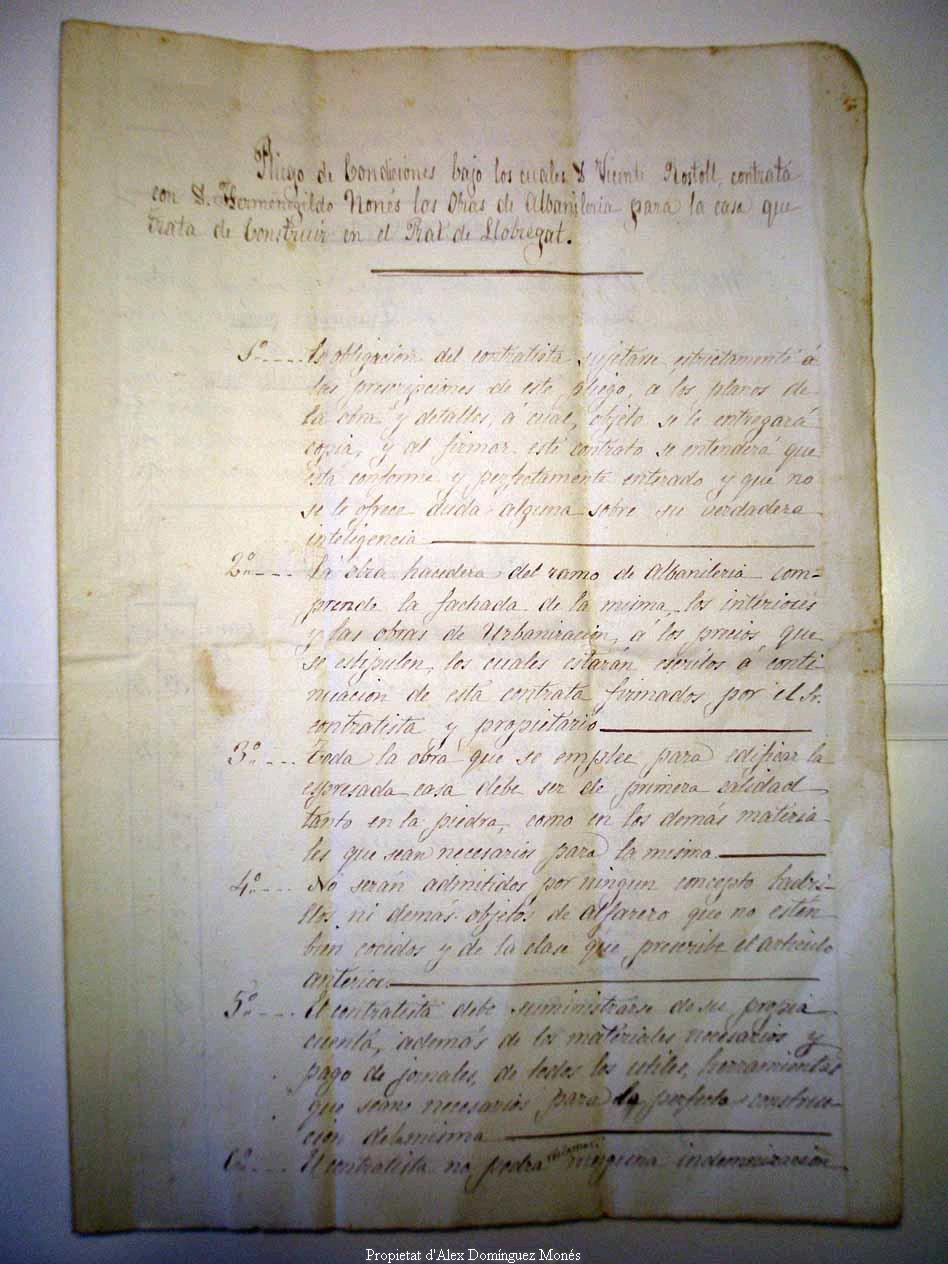 Pliego de Condiciones bajo los cuales D Vicente Rostoll, contratá
con D. Hermenegildo Monés las Obras de Albañileria para la casa que
trata de Construir en el Prat de Llobregat.
1º La obligacion del contratista sujetarse estrictamente á
las prescripciones de este pliego, a los planos de
la obra y detalles, á cual, objeto se le entregará
copia, y al firmar este contrato se entenderá que
está conforme y perfectamente enterado y que no
se le ofrece duda alguna sobre su verdadera
inteligencia
2º La obra hacedera del ramo de Albañileria com-
prende la fachada de la misma, los interiores
y las obras de Urbanizacion, á los precios que
se estipulen, los cuales estarán escritos á conti-
nuacion de esta contrata firmados por el Sr.
contratista y propietario
3º Toda la obra que se emplee para edificar la
espresada casa debe ser de primera calidad
tanto en la piedra, como en los demás materia-
les que sean necesarios para la misma
4º No serán admitidos por ningun concepto ladri-
llos ni demás objetos de alfarero que no estén
bien cocidos y de la clase que prescribe el articulo
anterior.
5º El contratista debe suministrarse de su propia
cuenta, además de los materiales necesarios y
pago de jornales, de todos los utiles, herramientas
que sean necesarios para la perfecta construc-
cion de la misma
6º El contratista no podrá reclamar ninguna indemnizacion
Propietat d'Alex Domínguez Monés